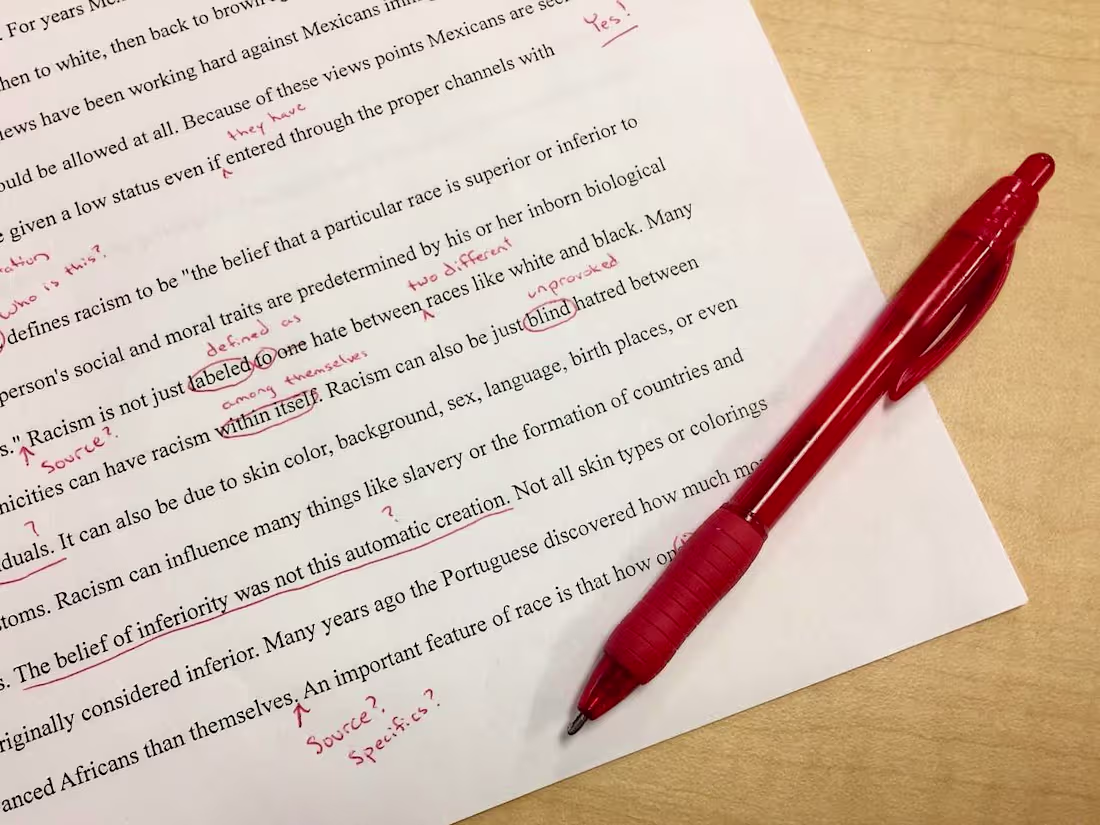 . For years
then to white, then back to brown
Yes!
iews have been working hard against Mexicans
ould be allowed at all. Because of these views points Mexicans are
they have
given a low status even if entered through the proper channels with
who is this?
defines racism to be "the belief that a particular race is superior or inferior to
person's social and moral traits are predetermined by his or her inborn biological
defined as
two different
unprovoked
s." Racism is not just labeled to one hate between races like white and black. Many
Source?
among themselves
nicities can have racism within itself. Racism can also be just blind hatred between
?
duals. It can also be due to skin color, background, sex, language, birth places, or even
stoms. Racism can influence many things like slavery or the formation of countries and
?
s. The belief of inferiority was not this automatic creation. Not all skin types or colorings
riginally considered inferior. Many years ago the Portuguese discovered how much
anced Africans than themselves. An important feature of race is that how
Source?
Specifics?